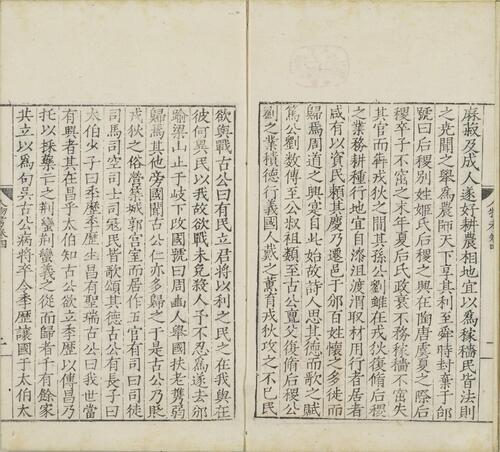 麻菽及成人遂好耕農相地宜以爲稼穡民皆法則
之堯聞之舉爲農師天下享其利至舜時封棄于邰
號曰后稷別姓姬氏后稷之興在陶唐虞夏之際后
稷卒子不窋立末年夏后氏政衰不務稼穡不窋失
其官而犇戎狄之間其孫公劉雖在戎狄復修后稷
之業務耕種行地宜自漆沮渡渭取材用行者居者
咸有以資民賴其慶乃遷邑于邠百姓懷之多徙而
歸焉周道之興寔自此始故詩人思其德而歌之賦
篤公劉數傳至公叔祖類至古公亶父復修后稷公
劉之業積德行義國人戴之薰育戎狄攻之不已民
欲與戰古公曰有民立君將以利之民之在我與在
彼何異民以我故欲戰未免殺人子不忍爲遂去邠
踰梁山止于岐下改國號曰周豳人舉國扶老攜弱
歸焉其他旁國聞古公仁亦多歸之于是古公乃貶
戎狄之俗營築城郭宫室而居作五官有司曰司徒
司馬司空司士司寇民皆歌頌其德古公有長子曰
太伯少子曰季歷季歷生昌有聖瑞古公曰我世當
有興者其在昌乎太伯知古公欲立季歷以傳昌乃
托以採藥亡之荆蠻荆蠻義之從而歸者千有餘家
共立以爲句吳古公病將卒令季歷讓國于太伯太